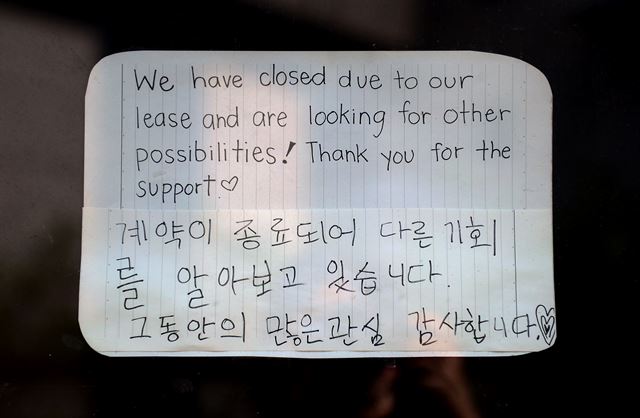 We have closed due to our
lease and are looking for other
possibilities! Thank you for the
support.♡
계약이 종료되어 다른 기회
를 알아보고 있습니다.
그동안의 많은관심 감사합니다.♡